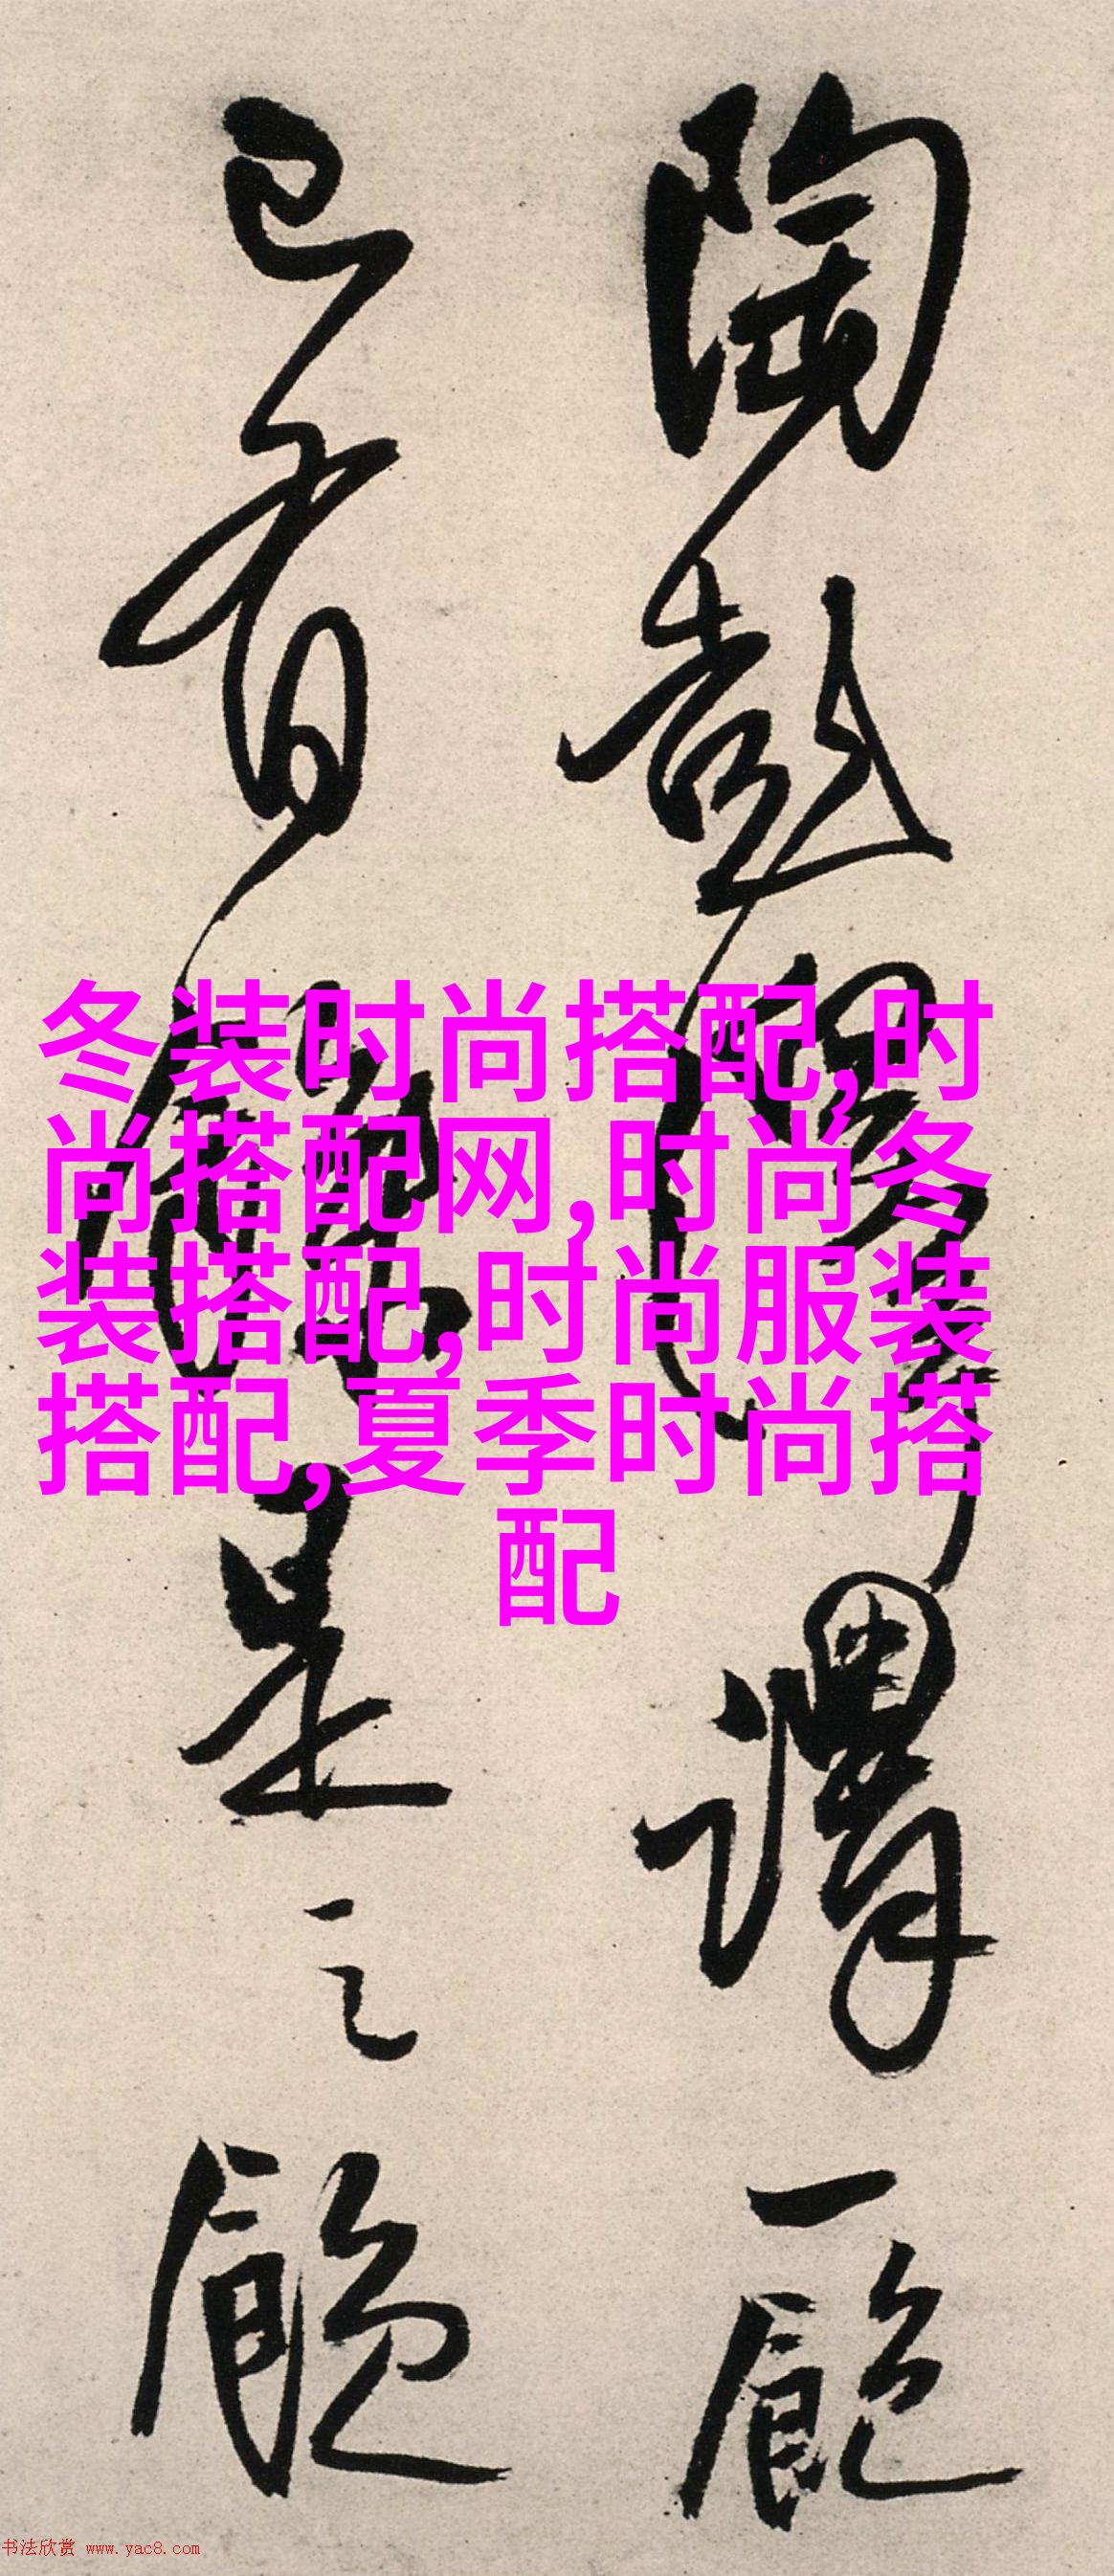 陶彭澤
謂一飽
已有餘是之飽
冬装时尚搭配,时
尚搭配网,时尚冬
装搭配,时尚服装
搭配,夏季时尚搭
配
书法欣赏 www.yac8.com